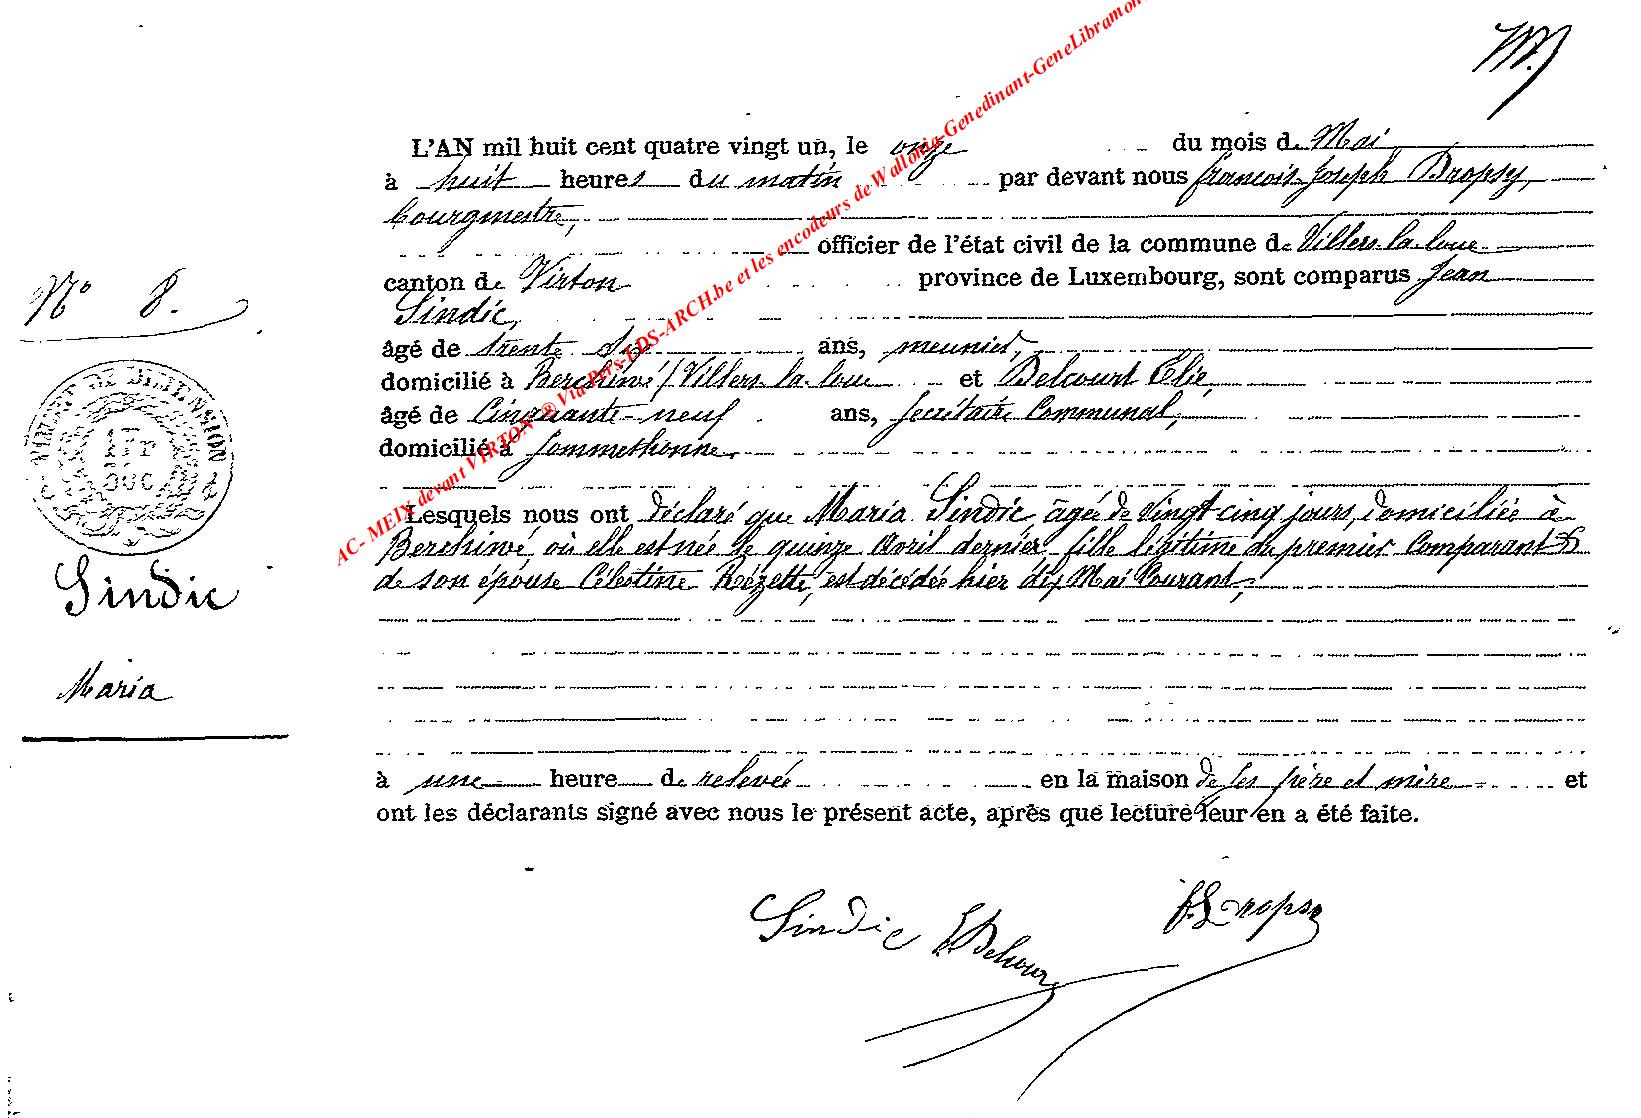 L'AN mil huit cent quatre vingt un, le onze du mois de Mai
à huit heures du matin par devant nous françois-Joseph Dropsy,
bourgmestre,
officier de l'état civil de la commune de Villers-la-loue
canton de Virton province de Luxembourg, sont comparus Jean
Sindic,
âgé de trente six ans, meunier,
domicilié à Berchiwé / Villers-la-loue et Delcourt Elie,
âgé de Cinquante-neuf ans, Secrétaire Communal,
domicilié à Sommethonne.
Lesquels nous ont déclaré que Maria Sindic, âgée de vingt-cinq jours, domiciliée à
Berchiwé, où elle est née le quinze avril dernier, fille légitime du premier Comparant &
de son épouse Célestine Rézette, est décédée hier dix Mai Courant,
à une heure de relevée en la maison de ses père et mère et
ont les déclarants signé avec nous le présent acte, après que lecture leur en a été faite.
Nº 8.
TIMBRE DE DIMENSION
Sindic
Maria
Sindic E Delcour F. Dropsy
AC- MEIX devant VIRTON ® Via Pers-LDS-ARCH.be et les encodeurs de Wallonia-Genedinant-GeneLibramon